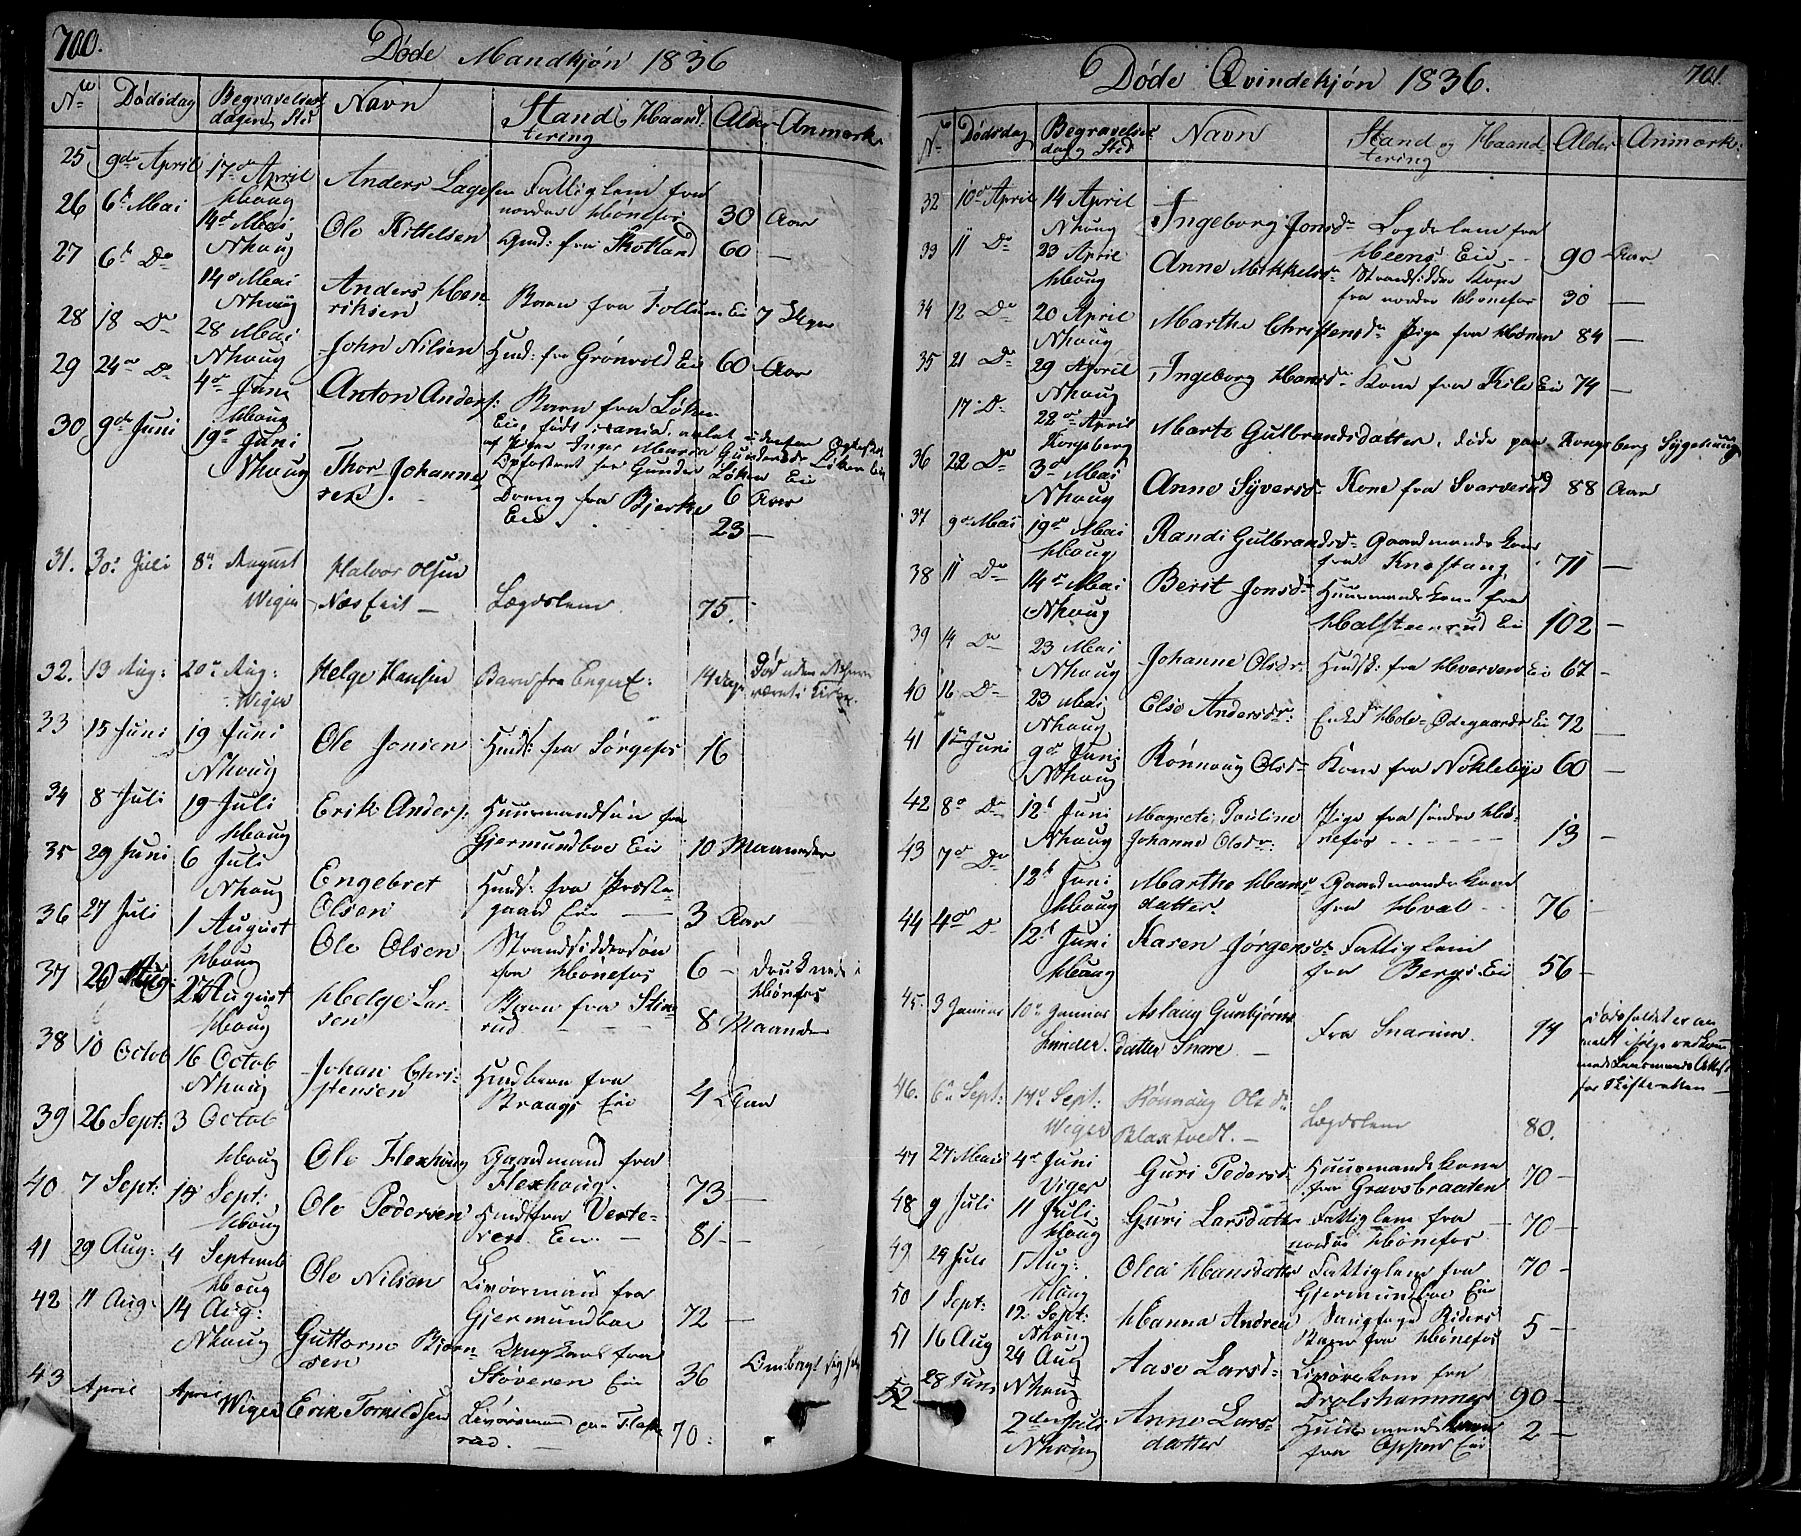 700.
Døde Mandkjøn 1836
No Dødsdag Begravelses dagen, Sted Navn Stand, Haandtering Alder Anmærk.
25 9de April 17de April Haug Anders Lagesen Fattiglem fra nordre Hønefos 30 Aar
26 6te Mai 14de Mai Nhaug Ole Kittelsen Hmd: fra Skotland 60 —
27 6te Do 14de Mai Nhaug Anders Henriksen Barn fra Follum Eie 7 Uger
28 18 Do 28 Mai Nhaug John Nilsen Hmd: fra Grønvold Eie 60 Aar
29 24de Do 4de Juni Haug Anton Anders: Barn fra Løken Eie, født
af Pige Inger Marie
Opfostret hos Gunder Løken Eie 6 Aar
30 9de Juni 19de Juni Nhaug Thor Johannesen. Dreng fra Bjerke Eie 23 —
31. 30. Juli 8de August Viger Halvor Olsen Næs Eie — Lægdslem 75.
32. 13 Aug: 20de Aug: Viger Helge Hansen Barn fra Enger E: 14 Dage Død uden at have været i Kirke.
33 15 Juni 19 Juni Nhaug Ole Jonsen Hmds: fra Sørgefos 16
34 8 Juli 19 Juli Haug Erik Anders: Huusmandssøn fra Gjermundboe Eie 10 Maaneder
35 29 Juni 6 Juli Nhaug Engebret Olsen Hmds: fra Prestegaard Eie — 3 Aar
36 27 Juli 1 August Haug Ole Olsen Strandsidderssøn fra Hønefos 6 — druknede i Hønefos
37 20 Aug: 27 August Haug Helge Larsen Barn fra Stinerud 8 Maaneder
38 10 Octob 16 Octob Nhaug Johan Christensen Hmdbarn fra Braags Eie 4 Aar
39 26 Sept: 3 Octob Haug Ole Flexhoug Gaardmand fra Flexhoug. 73 —
40 7 Sept: 15 Sept: Haug Ole Pedersen Hmd fra Vesteren Eie — 81 —
41 29 Aug: 4 Septemb Haug Ole Nilsen Livøresmand fra Gjermundboe 72 —
42 11 Aug. 14 Aug: Nhaug Guttorm Bjørnsen Ungkarl fra Støveren Eie 36 Ombragt sig selv
43 April April Viger Erik Tornildsen Livøresmand paa 70.
701.
Døde Qvindekjøn 1836.
No Dødsdag Begravelses dag og Sted Navn Stand og Haandtering Alder Anmærk:
32 10de April 14 April Nhaug Ingeborg Jonsdr Legdslem fra Heens Eie — 90 Aar
33 11 Do 23 April Haug Anne Mikkelsdr Strandsidder Kone fra nordre Hønefos 30 —
34 12 Do 20 April Nhaug Marthe Christensdr Pige fra Hønen 84 —
35 21 Do 29 April Nhaug Ingeborg Hansdr Kone fra Kile Eie 74 —
17 Do 22de April Kongsberg Marte Gulbrandsdatter, døde paa Kongsberg Sygehuus
36 22 Do 3de Mai Nhaug Anne Syversdr Kone fra Svarverud 88 Aar
37 9de Mai 19de Mai Haug Randi Gulbrandsdr Gaardmands Kone fra Knestang 71 —
38 11 Do 14de Mai Nhaug Berit Jonsdr Huusmands Kone fra Halsteensrud Eie 102 —
39 14 Do 23 Mai Nhaug Johanne Olsdr Hmdsk: fra Hverven Eie 67 —
40 16 Do 23 Mai Nhaug Else Andersdr: Enke Hole-Ødegaards Ei 72 —
41 1ste Juni 9de Juni Nhaug Rønnoug Olsdr Kone fra Nøklebye 60 —
42 8de Do 12te Juni Nhaug Magrete Pauline Johanne Olsdr: Pige fra søndre Hønefos 13 —
43 7de Do 12te Juni Haug Marthe Hansdatter. Gaardmands Kone fra Hval 76 —
44 4de Do 12te Juni Haug Karen Jørgensdr Fattiglem fra Bergs Eie 56 —
45. 3 Januar 10de Januar Lunder. Aslaug Gunbjørnsdatter Snare. — Fra Snarum. 94 Dødsfaldet er anmeldt ifølge Lensmands Attest for Skifteretten
46. 6te Sept: 14de Sept: Viger Rønnaug Olsdr Blaxtvedt. — Lægdslem 80.
47 27 Mai 4de Juni Viger Guri Pedersd. Huusmands Kone fra Gravsbraaten 70 —
48 9 Juli 11 Juli Haug Guri Larsdatter Fattiglem fra nordre Hønefos — 70 —
49 24 Juli 1 Aug: Haug Olea Hansdatter Fattiglem fra Gjermundboe Eie 70 —
50 1 Sept: 12 Sept: Nhaug Hanna Andrea Barn fra Hønefos 5 —
51 16 Aug 24 Aug Nhaug Aase Larsd. Livøreskone fra Drolshammer 90 —
52 28 Juni 2den Juli Nhaug Anne Larsdatter Huusmands fra Oppen Eie 2 —